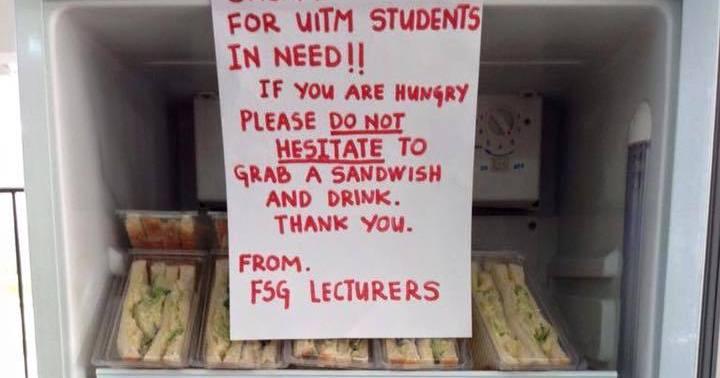 FOR UITM STUDENTS
IN NEED!!
IF YOU ARE HUNGRY
PLEASE DO NOT
HESITATE TO
GRAB A SANDWISH
AND DRINK.
THANK YOU.
FROM.
FSG LECTURERS